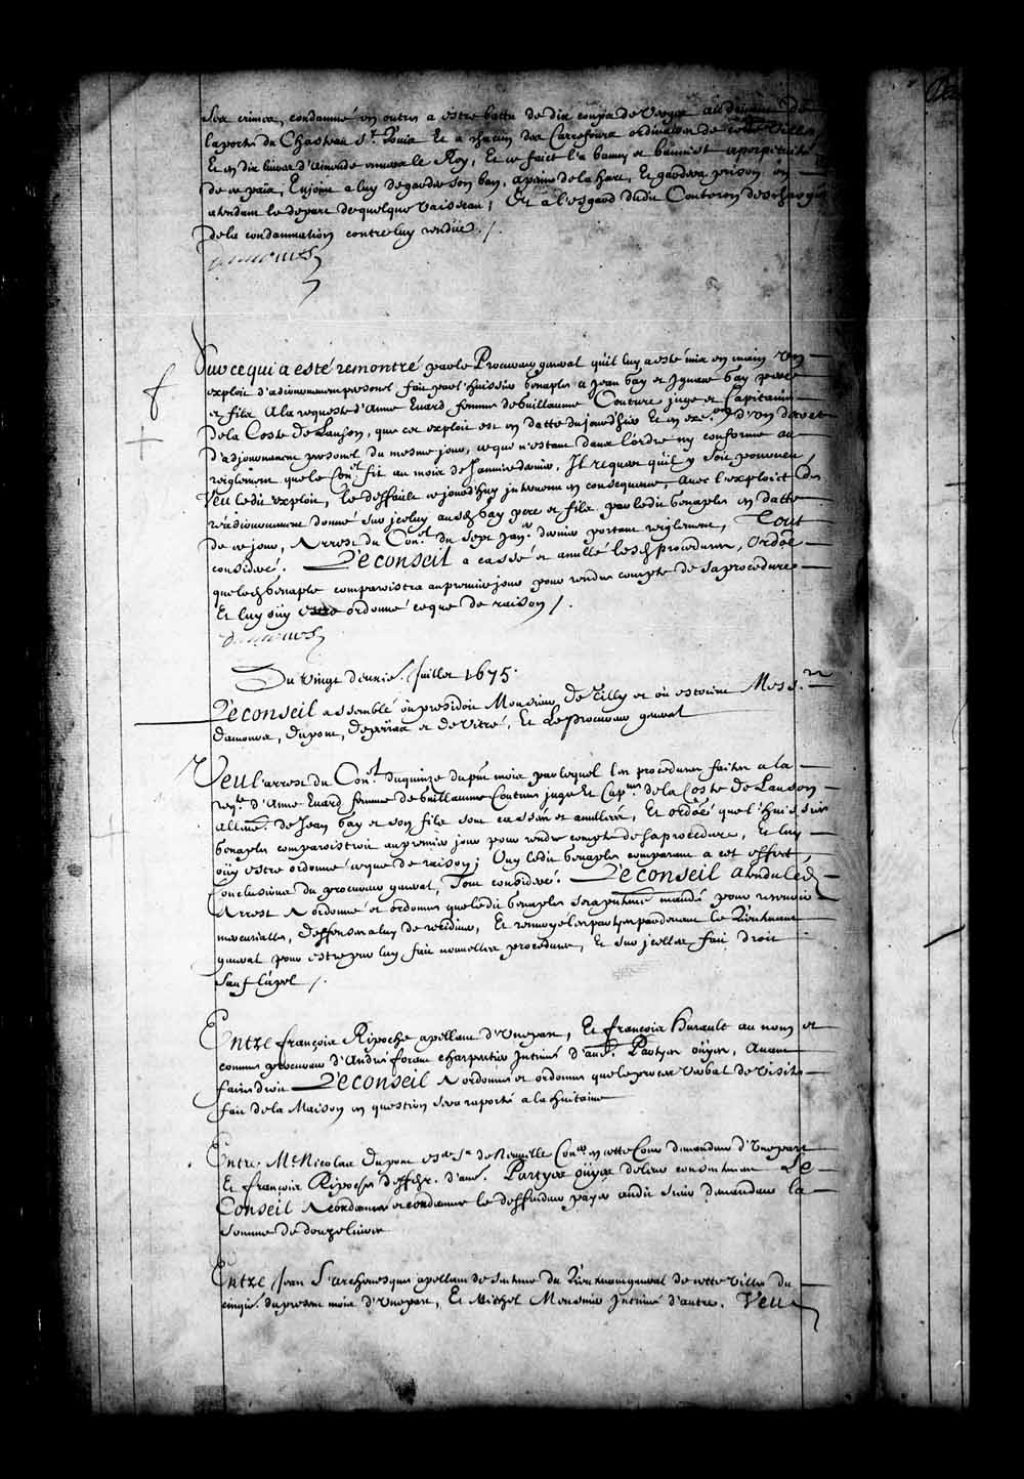 Ses crimes, condamné en outre a estre battu de dix coups de verges au devant de
la porte du Chasteau St Louis Et a chacun des Carrefours ordinaires de cette ville
Et en dix livres d'amende envers le Roy, Et ce faict l'a banny et bannist a perpetuité
de ce païs, Enjoint a luy de garder son ban, a peine de la hart, Et gardera prison en
atendant le depart de quelque vaisseau; Et a l'esgard dudit Couteron deschargé
de la condamnation contre luy rendüe /.
Sur ce qui a esté remontré par le Procureur general qu'il luy a esté mis en main un
exploit d'adiournement personel fait par l'huissier Genaple a Jean Gay et Ignace Gay pere
et fils A la requeste d'Anne Euard femme de Guillaume Couture juge et Capitaine
de la Coste de Lauson, que cet exploit est en datte du jourd'huy Et en d'un decret
d'adjournement personel du mesme jour, ce qui n'estant dans l'ordre ny conforme au
reiglement que le Conel fit au mois de Janvier dernier, Il requeroit qu'il y soit pourveu,
Veu ledit exploit, le deffault ce jourd'huy intervenu en consequence, Avec l'exploict de
readiournement donné sur iceluy ausd Gay pere et fils par ledit Genaples en datte
de ce jour, Arrest du Conel du sept janr dernier portant reiglement, Tout
consideré. Le Conseil a cassé et anullé lesd procedures, Ordoe
que led Genaple comparoistra au premier jour pour rendre compte de sa procedure
Et luy oüy estre ordonné ce que de raison /.
Du vingt deuxie. Juillet 1675.
Le Conseil assemblé où presidoit Monsieur de Tilly et où estoient Messrs
Damours, Dupont, Depeiras et de Vitré, Et Le procureur general
Veu l'arrest du Conel du quinze du pnt mois par lequel les procedures faites a la
reqte d'Anne Euard femme de Guillaume Couture juge Et Capne de la Coste de Lauson
allenc. de Jean Gay et son fils sont cassées et anullées, Et ordoé que l'huissier
Genaples comparoistroit au premier jour pour rendre compte de sa procedure, Et luy
oüy estre ordonné ce que de raison; Ouy ledit Genaples comparant a cet effect,
Conclusions du procureur general, Tout consideré. Le Conseil attendu led
Arrest A ordonné et ordonne que ledit Genaples sera mandé pour recevoir
mercurialles, deffenses a luy de recidiver, Et renvoye les partyes pardevant le Lieutenant
general pour estre par luy fait nouvelles procedures, Et sur icelles fait droit
sauf l'apel /.
Entre françois Ripoche apellant d'une part, Et françois Hurault au nom et
comme procureur d'André foran charpentier Intimé d'aue. Partyes oüyes, Avant
faire droit Le Conseil A ordonné et ordonne que le procez verbal de visite
fait de la Maison en question sera raporté a la huitaine
Entre Me Nicolas Dupont escr Sr de Neuville Coner en cette Cour demandeur d'une part
Et françois Ripoche deffdr. d'aue. Partyes oüyes de leur consentement Le
Conseil A condamné et condamne le deffendeur payer audit sieur demandeur la
somme de douze livres
Entre Jean L'archeuesque apellant de sentence du Lieutenant general de cette ville du
cinqie. du present mois d'une part, Et Michel Intimé d'autre. Veu